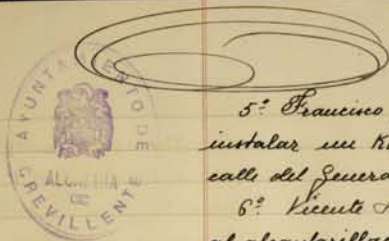 AYUNTAMIENTO DE CREVILLENTE
ALCALDIA
5º Francisco
instalar un
calle del General
6º Vicente
al alcantarillado